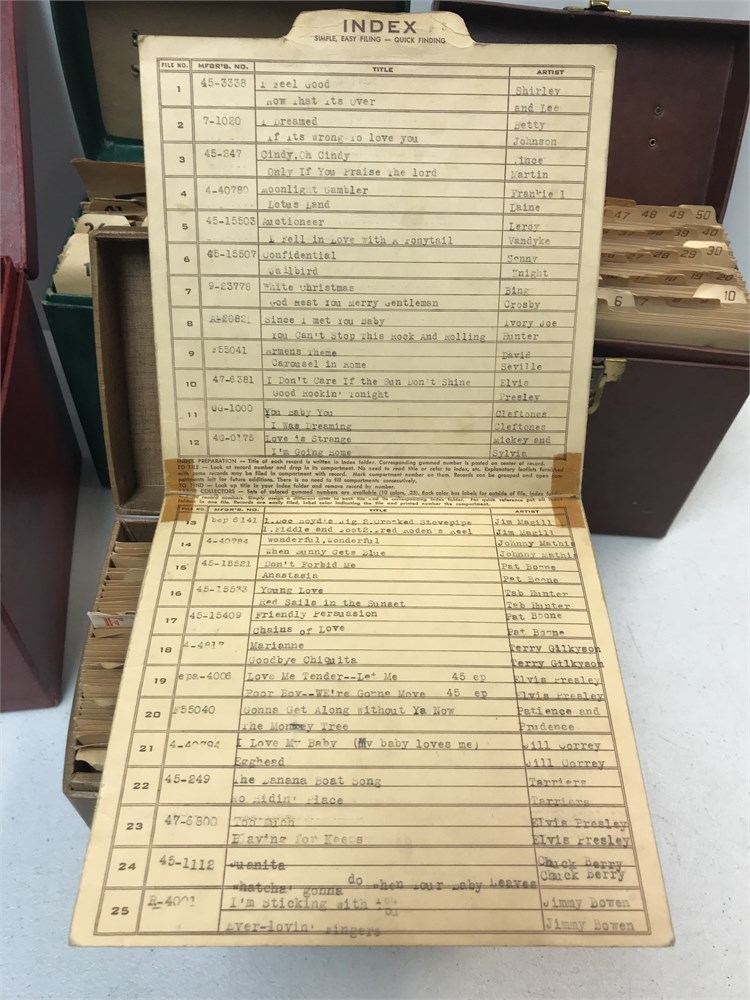 INDEX
SIMPLE, EASY FILING — QUICK FINDING
FILE NO. MFGR'S. NO. TITLE ARTIST
1 45-3338 I Feel Good Shirley
Now That Its Over and Lee
2 7-1020 I Dreamed Betty
If Its Wrong To love you Johnson
3 45-247 Cindy,Oh Cindy Vince
Only If You Praise The lord Martin
4 4-40780 Moonlight Gambler Frankie l
Lotus Land Laine
5 45-15503 Auctioneer Leroy
I Fell in Love with A Ponytail Vandyke
6 45-15507 Confidential Sonny
Jailbird Knight
7 9-23778 White Christmas Bing
God Rest You Merry Gentleman Crosby
8 Since I met You Baby Ivory Joe
You Can't Stop This Rock And Rolling Hunter
9 F55041 Armens Theme David
Carousel in Rome Seville
10 47-6381 I Don't Care If the Sun Don't Shine Elvis
Good Rockin' Tonight Presley
11 GG-1000 You Baby You Cleftones
I Was Dreaming Cleftones
12 4G-0175 Love is Strange Mickey and
I'm Going Home Sylvia
INDEX PREPARATION — Title of each record is written in Index folder. Corresponding gummed number is pasted on center of record.
TO FILE — Look at record number and drop in its compartment. No need to read title or refer to Index, etc. Explanatory leaflets furnished
with some records may be filed in compartment with record. Mark compartment number on them. Records can be grouped and open com-
partments left for future additions. There is no need to fill compartments consecutively.
TO FIND — Look up title in your Index folder and remove record by number.
FILE NO. MFGR'S. NO. TITLE ARTIST
13 bep 6141 Jim Magill
1.Fiddle and Foot2..red Roden's Reel Jim Magill
14 4-40784 Wonderful,Wonderful Johnny Mathis
When Sunny Gets Blue Johnny Mathis
15 45-15521 Don't Forbid Me Pat Boone
Anastasia Pat Boone
16 45-15533 Young Love Tab Hunter
Red Sails in the Sunset Tab Hunter
17 45-15409 Friendly Persuasion Pat Boone
Chains of Love Pat Boone
18 Marianne Terry Gilkyson
Goodbye Chiquita Terry Gilkyson
19 epa-4006 Love Me Tender--Let Me 45 ep Elvis Presley
Poor Boy--WE're Gonna Move 45 ep Elvis Presley
20 F55040 Gonna Get Along Without Ya Now Patience and
The Monkey Tree Prudence
21 I Love My Baby (My baby loves me) Jill Correy
Egghead Jill Correy
22 45-249 The Banana Boat Song Tarriers
No Hidin' Place Tarriers
23 47-6800 Too Much Elvis Presley
Playing for Keeps Elvis Presley
24 45-1112 Juanita Chuck Berry
Whatcha' gonna do When Your Baby Leaves Chuck Berry
25 R-4001 I'm Sticking with You Jimmy Bowen
Ever-lovin' Fingers Jimmy Bowen
47 48 49 50
30
6 7 10